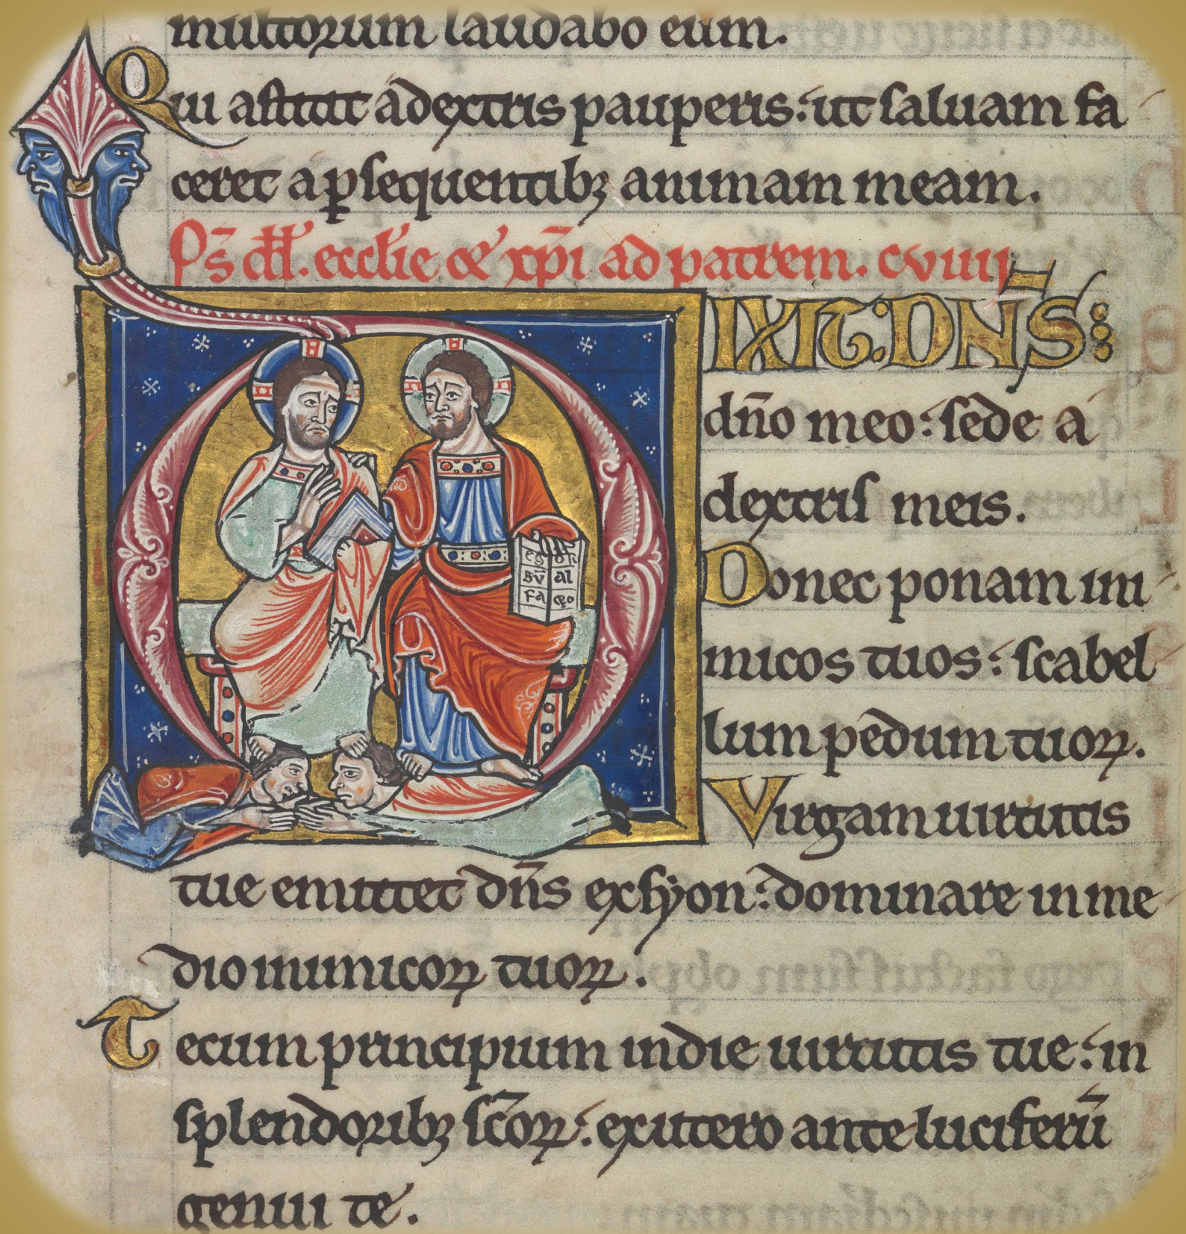 multorum laudabo eum.
Qui astitit adextris pauperis: ut saluam fa
ceret a ꝑsequentibꝫ animam meam.
Ps̄ dd̄. eccl̄ie & xp̄i ad patrem. cviiij
IXIT: DN̄S:
dn̄o meo: sede a
dextris meis.
Donec ponam ini
micos tuos: scabel
lum pedum tuoꝝ.
Virgam uirtutis
tue emittet dn̄s ex syon: dominare in me
dio inimicoꝝ tuoꝝ.
Tecum principium in die uirtutis tue: in
splendoribꝫ sc̄oꝝ: ex utero ante luciferū
genui te.
ego
sū al
fa &o